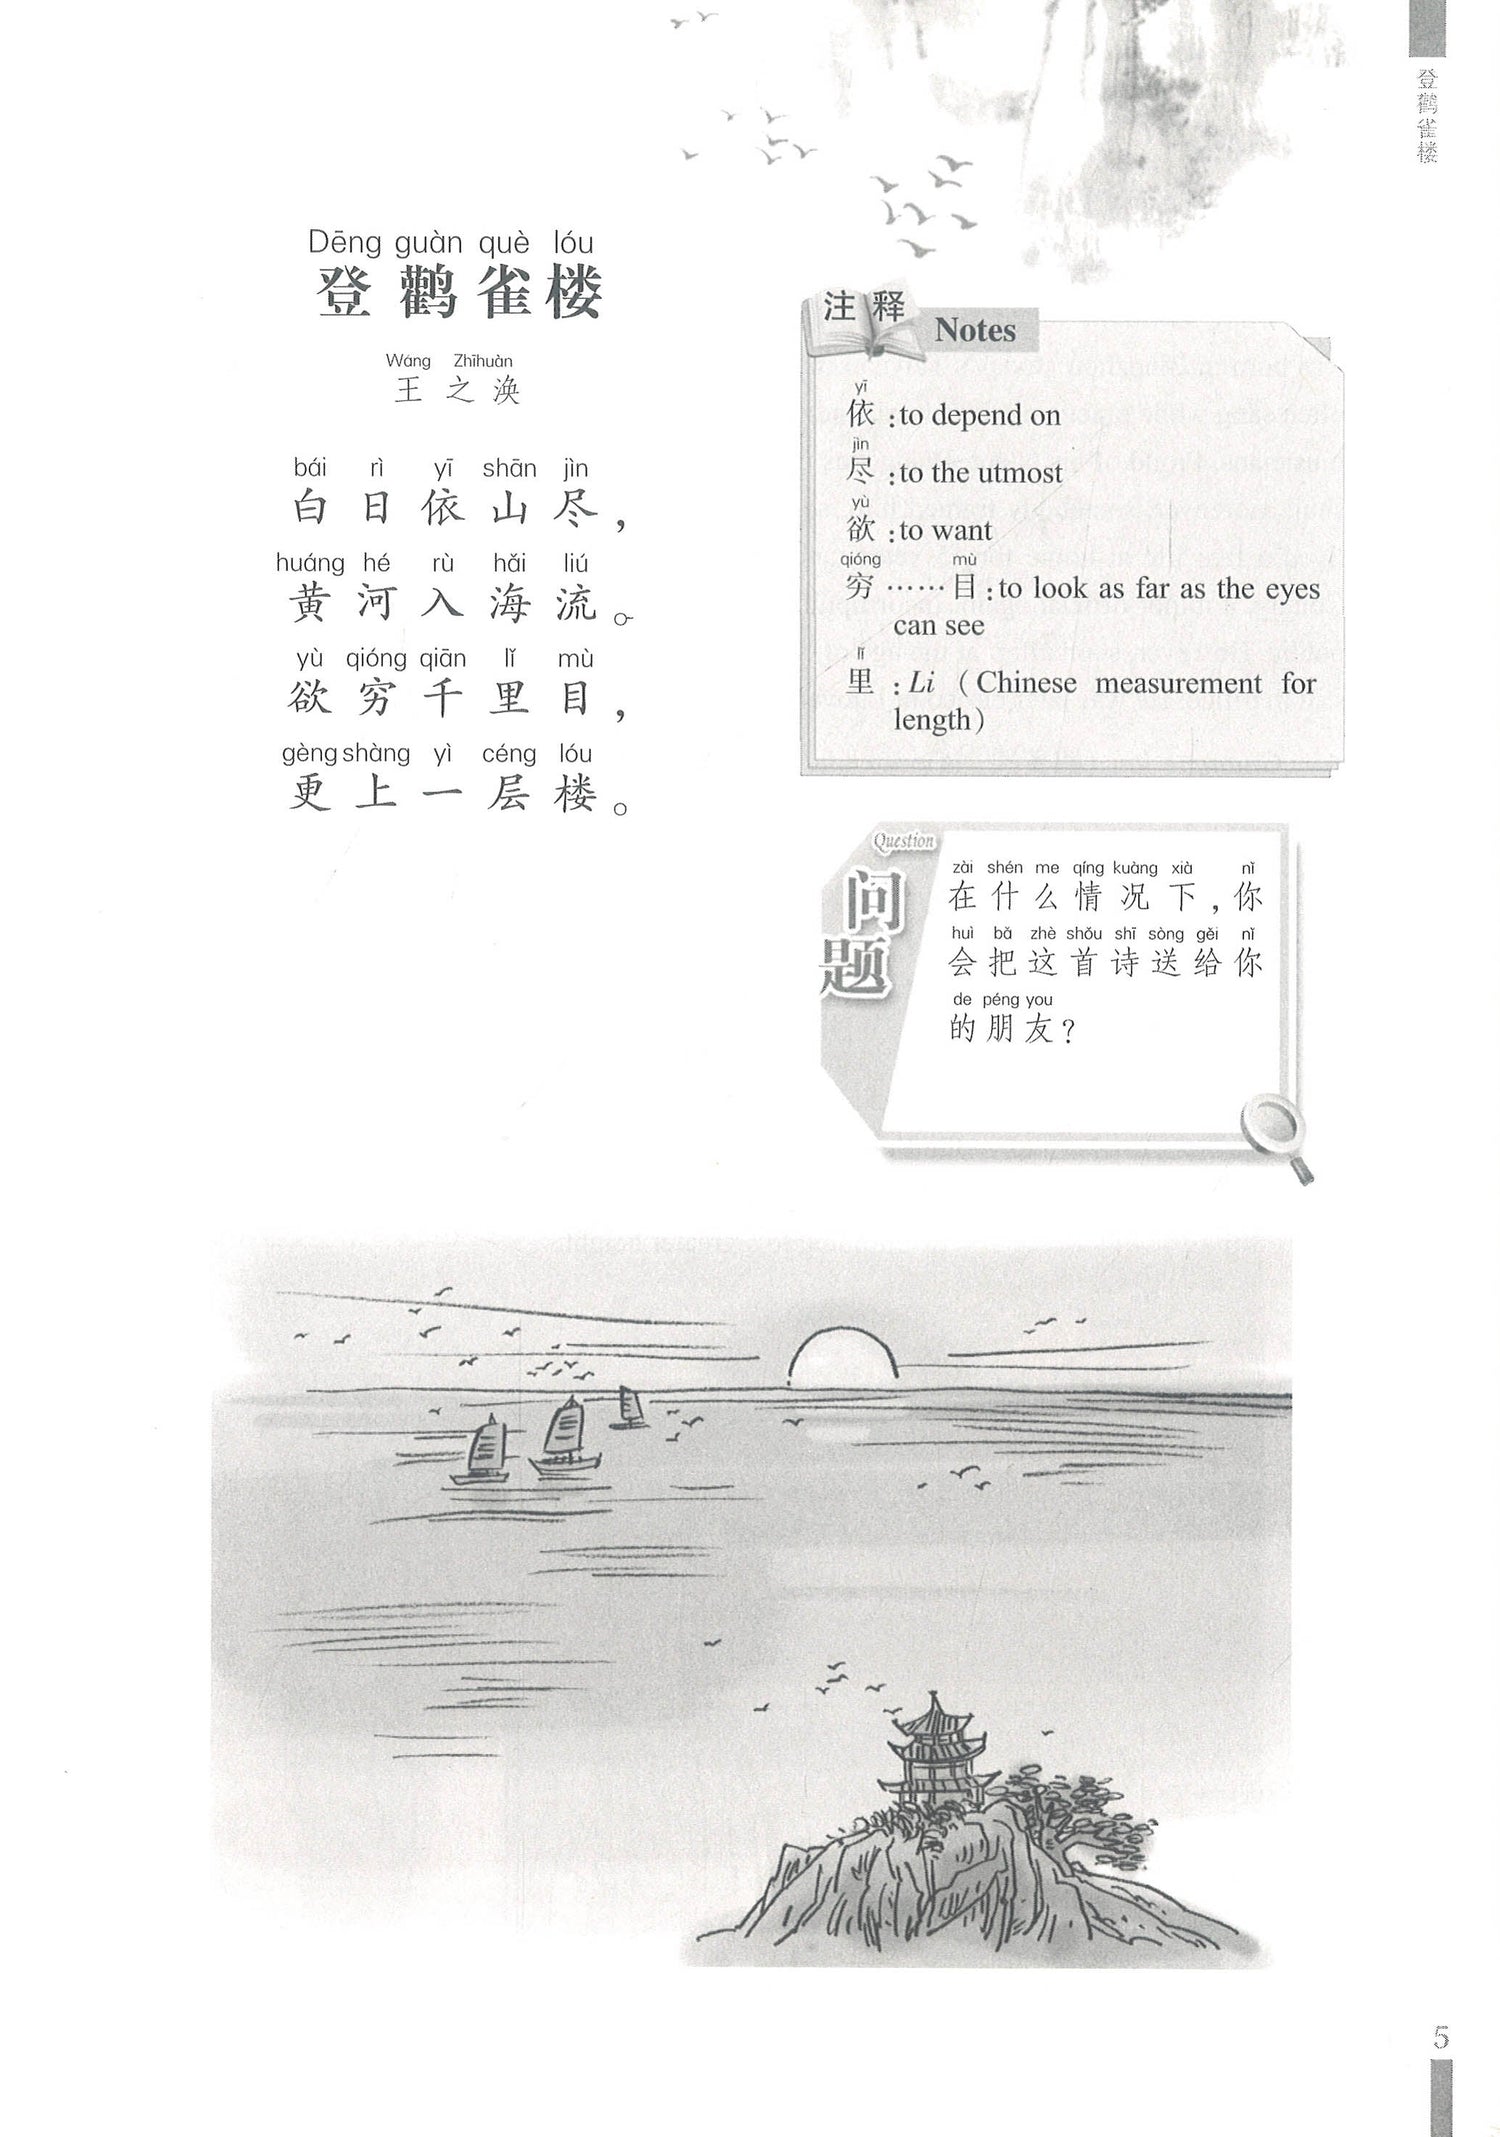 登鹳雀楼
Dēng guàn què lóu
登鹳雀楼
Wáng Zhīhuàn
王之涣
bái rì yī shān jìn
白日依山尽，
huáng hé rù hǎi liú
黄河入海流。
yù qióng qiān lǐ mù
欲穷千里目，
gèng shàng yì céng lóu
更上一层楼。
注释 Notes
yī
依:to depend on
jìn
尽:to the utmost
yù
欲:to want
qióng mù
穷……目:to look as far as the eyes
can see
lǐ
里:Li（Chinese measurement for
length）
Question
问题
zài shén me qíng kuàng xià nǐ
在什么情况下，你
huì bǎ zhè shǒu shī sòng gěi nǐ
会把这首诗送给你
de péng you
的朋友？
5